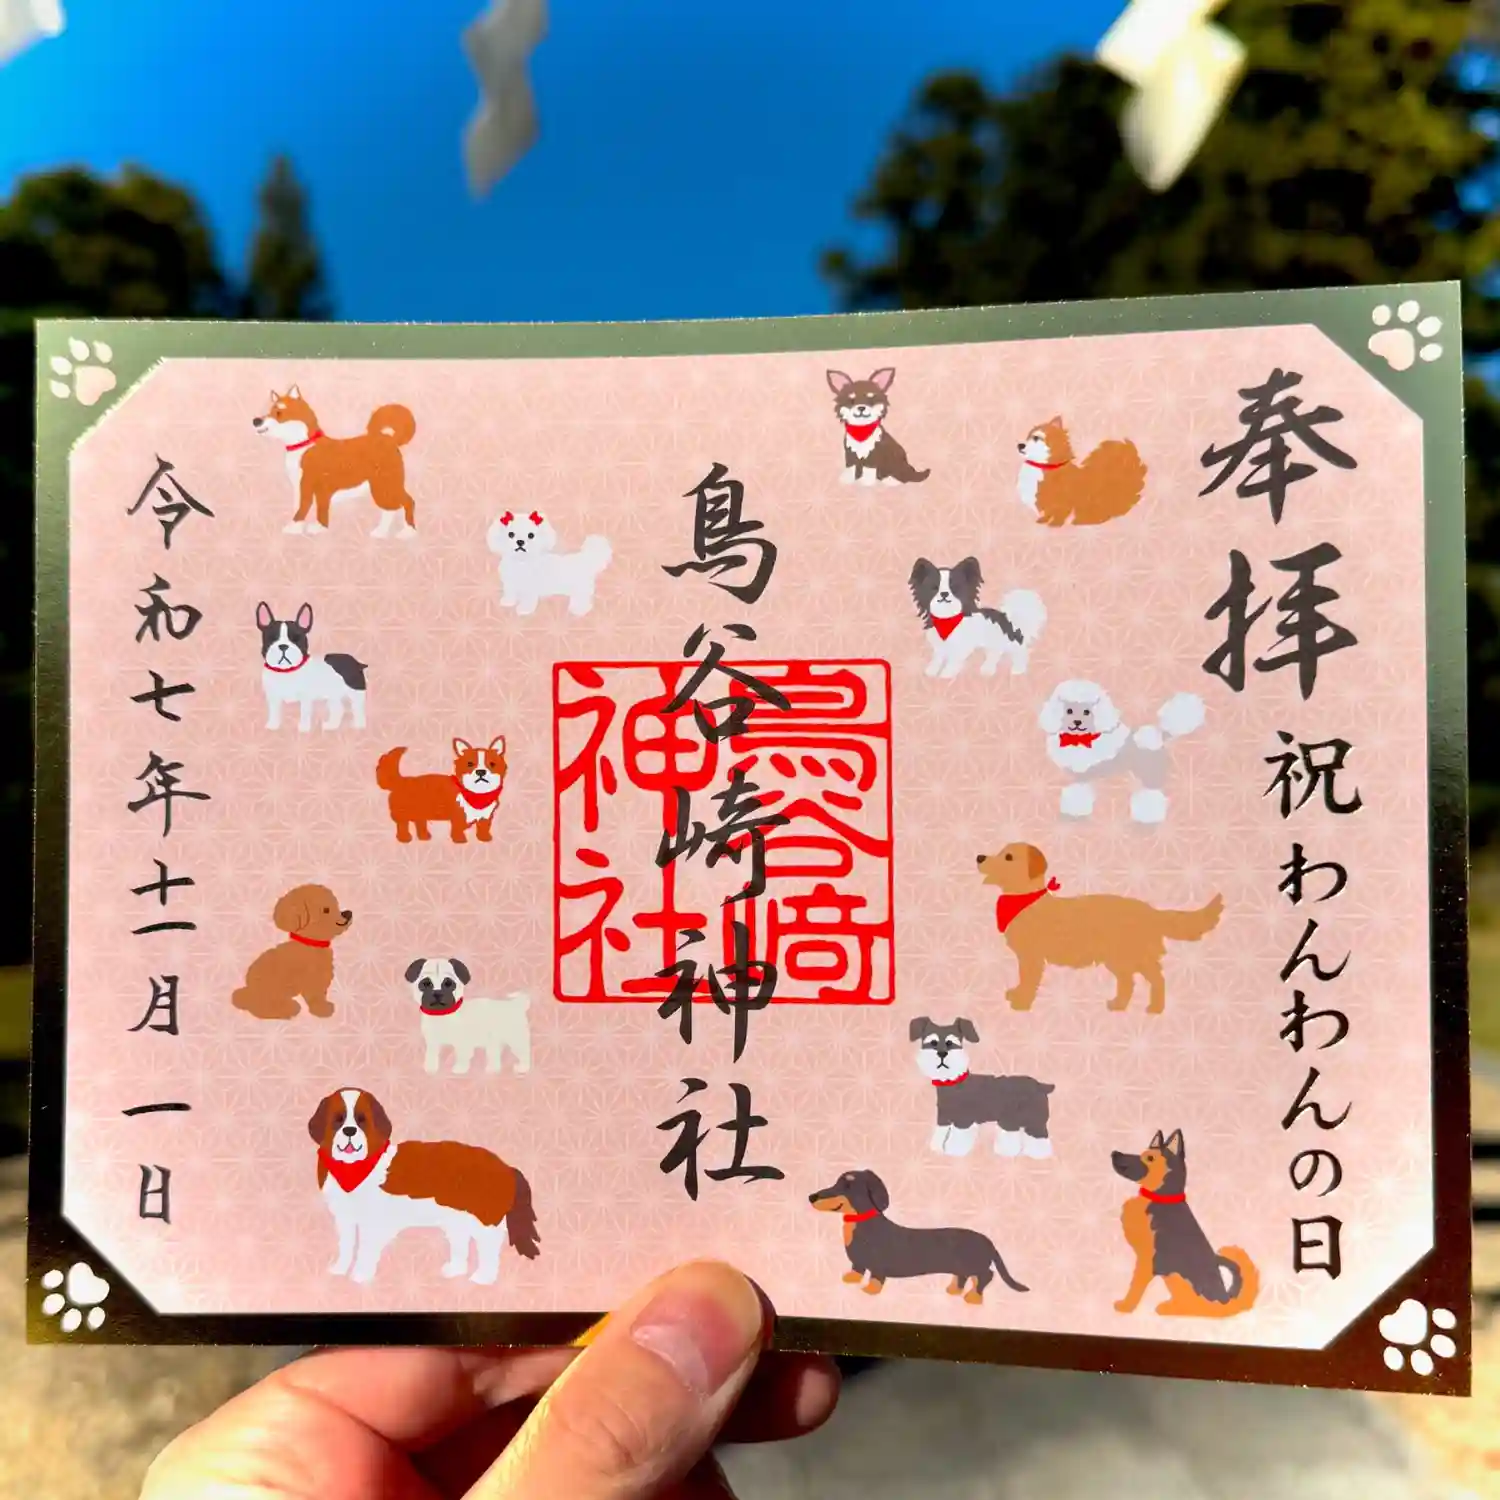 奉拝
祝わんわんわんの日
鳥谷崎神社
鳥谷崎
神社
令和七年十一月一日